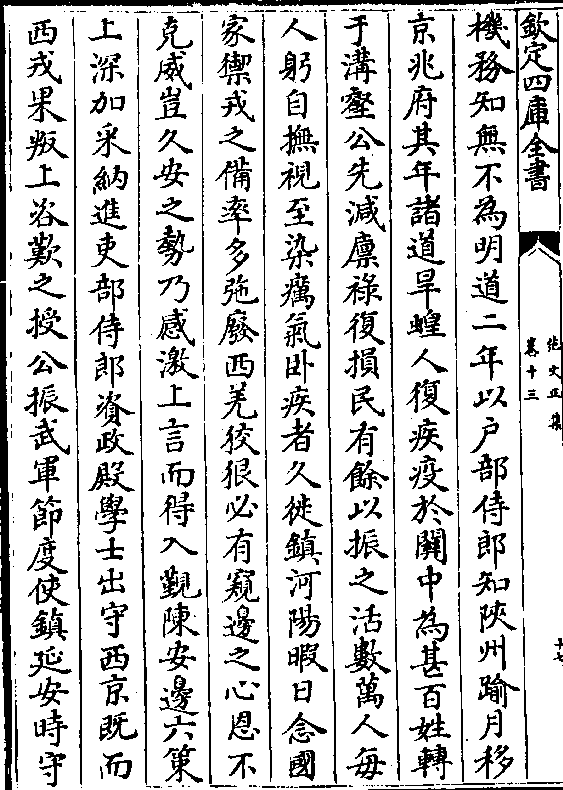 欽定四庫全書
范文正集
卷十三
十七
機務知無不為明道二年以户部侍郎知陜州踰月移
京兆府其年諸道旱蝗人復疾疫於關中為甚百姓轉
于溝壑公先減廪祿復損民有餘以振之活數萬人毎
人躬自撫視至染癘氣卧疾者久徙鎮河陽暇日念國
家禦戎之備率多弛廢西羌狡狠必有窺邊之心恩不
克威豈久安之勢乃感激上言而得入覲陳安邊六策
上深加采納進吏部侍郎資政殿學士出守西京既而
西戎果叛上咨歎之授公振武軍節度使鎮延安時守